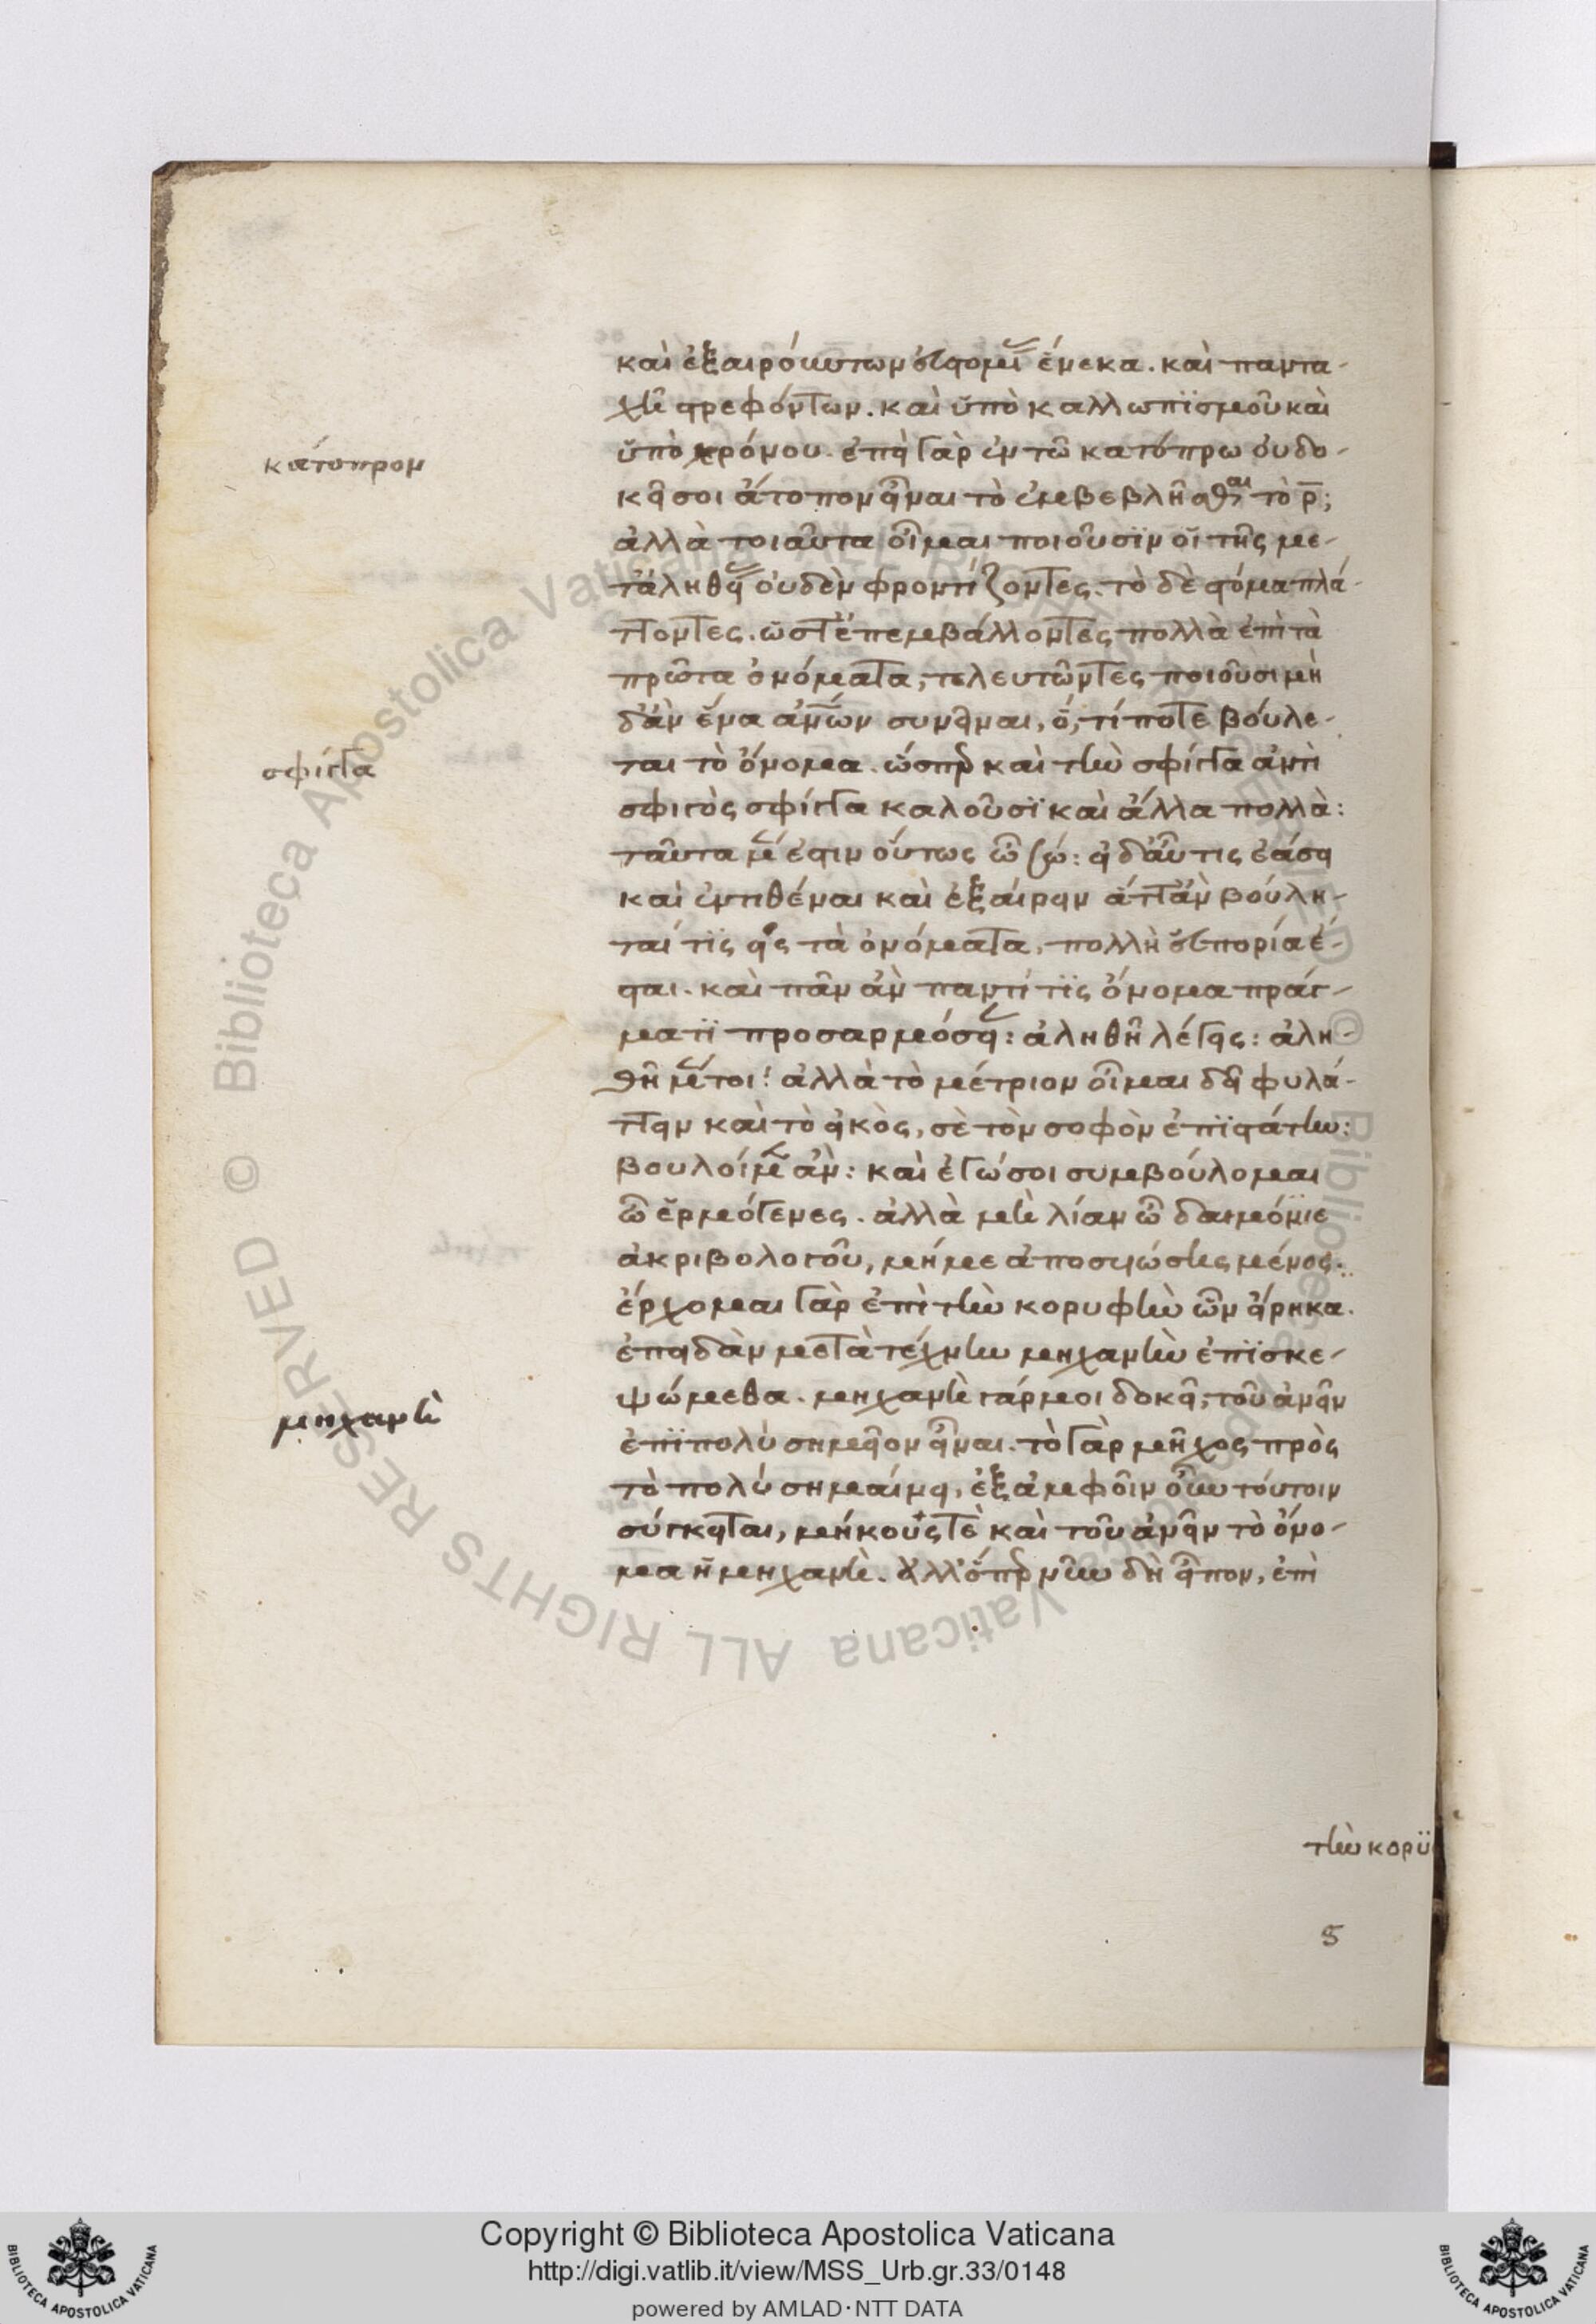 καὶ ἐξαιρόυντων ἐυστομίας ἕνεκα. καὶ παντα-
χῆ στρεφόντων. καὶ ὑπὸ καλλωπισμοῦ καὶ
ὑπὸ χρόνου. ἐπεὶ γὰρ ἐν τῶ κατόπρω ὀυ δο-
κεῖ σοι ἄτοπον εἶναι τὸ ἐμβεβλῆσθαι τὸ ρ̅;
ἀλλὰ τοιαῦτα οἶμαι ποιοῦσϊν οἱ τῆς μὲ-
τάληθείας ὀυδὲν φροντίζοντες. τὸ δὲ στόμα πλά-
ττοντες. ὥστ' ἐπεμβάλλοντες πολλὰ ἐπὶ τὰ
πρῶτα ὀνόματα, τελευτῶντες ποιοῦσι μὴ
δ' ἂν ἕνα ἀνθρώπων συνεῖναι, ὅ, τί ποτε βούλε-
ται τὸ ὄνομα. ὥσπερ καὶ τὴν σφίγγα ἀντὶ
σφιγὸς σφίγγα καλοῦσϊ καὶ ἄλλα πολλὰ:
ταῦτα μέν ἐστιν οὕτως ὦ σώ: εἰ δ' ἄυ τις ἐάσει
καὶ ἐντιθέναι καὶ ἐξαίρειν ἅττ' ἂν βούλη-
ταί τϊς εἰς τὰ ὀνόματα, πολλὴ ἐυπορία ἔ-
σται. καὶ πᾶν ἂν παντί τϊς ὄνομα πράγ-
ματϊ προσαρμόσειεν: ἀληθῆ λέγεις: ἀλη-
θῆ μέντοι: ἀλλὰ τὸ μέτριον οἶμαι δεῖ φυλά-
ττειν καὶ τὸ εἰκὸς, σὲ τὸν σοφὸν ἐπϊστάτην:
βουλοίμην ἄν: καὶ ἐγώ σοι συμβούλομαι
ὦ ἑρμόγενες. ἀλλὰ μὴ λίαν ὦ δαιμόνιε
ἀκριβολογοῦ, μή με ἀπογυιώσης μένος.
ἔρχομαι γὰρ ἐπὶ τὴν κορυφὴν ὧν εἴρηκα.
ἐπειδὰν μετὰ τέχνην μηχανὴν ἐπϊσκε-
ψώμεθα. μηχανὴ γάρ μοι δοκεῖ, τοῦ ἀνεῖν
ἐπϊπολὺ σημεῖον εἶναι. τὸ γὰρ μῆχος πρὸς
τὸ πολύ σημαίνει, ἐξ ἀμφοῖν οὖν τόυτοιν
σύγκειται, μήκους τὲ καὶ τοῦ ἀνεῖν τὸ ὄνο-
μα ἡ μηχανὴ. ἀλλ' ὅπερ νῦν δὴ εἶπον, ἐπὶ
κάτοπρον
σφίγγα
μηχανὴ
τὴν κορϋ
5
Copyright © Biblioteca Apostolica Vaticana
http://digi.vatlib.it/view/MSS_Urb.gr.33/0148
powered by AMLAD·NTT DATA